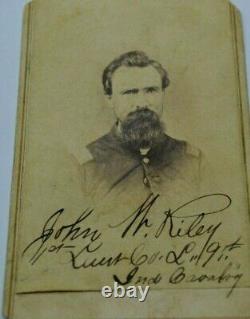 John W. Riley
1st Lieut Co. L. 9th
Ind Cavalry